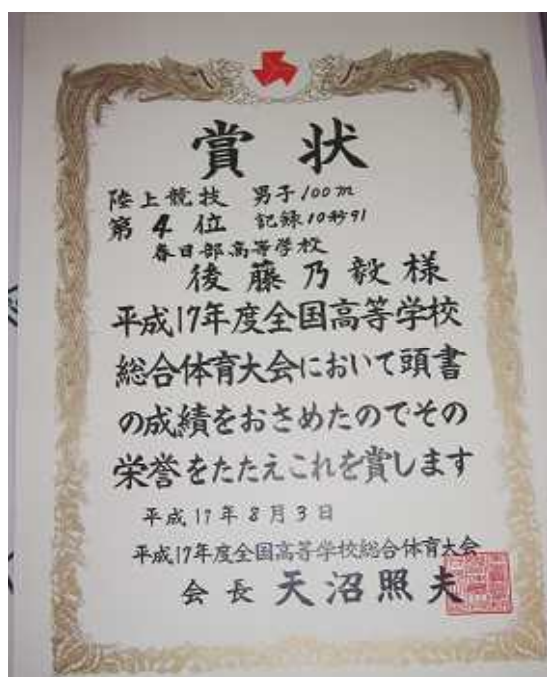 賞状
陸上競技 男子100m
第4位 記録10秒91
春日部高等学校
後藤乃毅様
平成17年度全国高等学校
総合体育大会において頭書
の成績をおさめたのでその
栄誉をたたえこれを賞します
平成17年8月3日
平成17年度全国高等学校総合体育大会
会長 天沼照夫